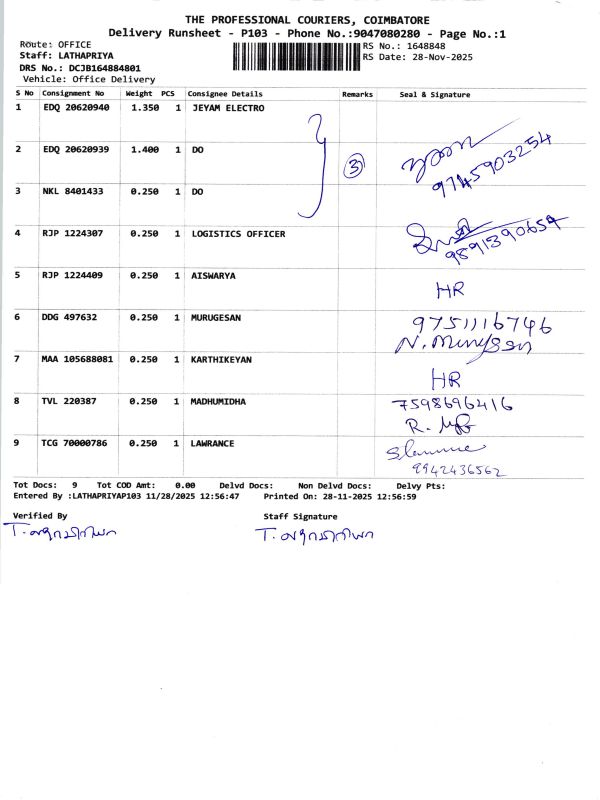 THE PROFESSIONAL COURIERS, COIMBATORE
Delivery Runsheet - P103 - Phone No.:9047080280 - Page No.:1
Route: OFFICE RS No.: 1648848
Staff: LATHAPRIYA RS Date: 28-Nov-2025
DRS No.: DCJB164884801
Vehicle: Office Delivery
S No Consignment No Weight PCS Consignee Details Remarks Seal & Signature
1 EDQ 20620940 1.350 1 JEYAM ELECTRO
2 EDQ 20620939 1.400 1 DO 3
9745903254
3 NKL 8401433 0.250 1 DO
4 RJP 1224307 0.250 1 LOGISTICS OFFICER
9891390659
5 RJP 1224409 0.250 1 AISWARYA HR
6 DDG 497632 0.250 1 MURUGESAN 9751116746
7 MAA 105688081 0.250 1 KARTHIKEYAN HR
8 TVL 220387 0.250 1 MADHUMIDHA 7598696416
R.
9 TCG 70000786 0.250 1 LAWRANCE
9942436562
Tot Docs: 9 Tot COD Amt: 0.00 Delvd Docs: Non Delvd Docs: Delvy Pts:
Entered By :LATHAPRIYAP103 11/28/2025 12:56:47 Printed On: 28-11-2025 12:56:59
Verified By Staff Signature